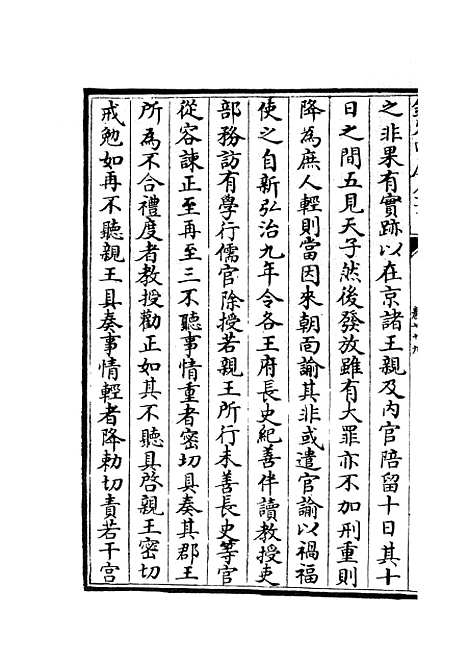 之非果有實跡以在京諸王親及内官陪留十日其十
日之間五見天子然後發放雖有大罪亦不加刑重則
降為庶人輕則當因來朝面諭其非或遣官諭以禍福
使之自新弘治九年令各王府長史紀善伴讀教授吏
部務訪有學行儒官除授若親王所行未善長史等官
從容諫正至再至三不聽事情重者密切具奏其郡王
所為不合禮度者教授勸正如其不聽具啓親王密切
戒勉如再不聽親王具奏事情輕者降勅切責若干宫